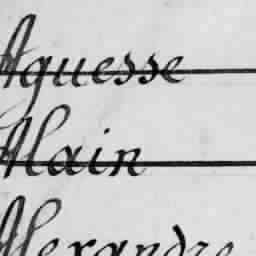 Aguesse
Alain
Alexandre